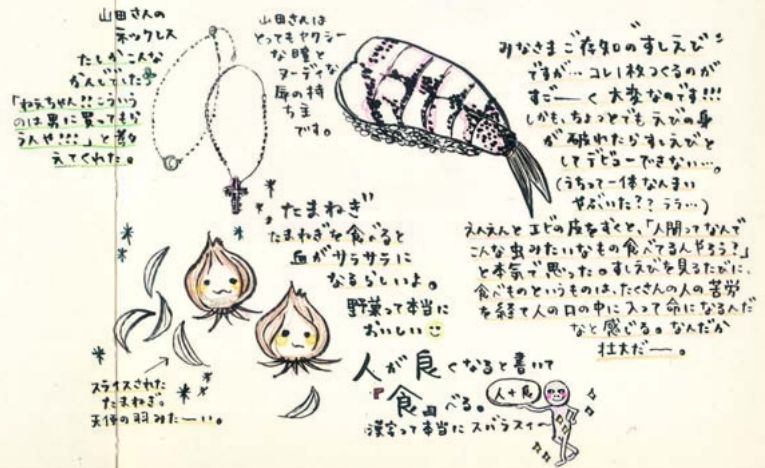 山田さんの
ネックレス
たしかこんな
かんじでした
「ねえちゃん!!こういう
のは男に買ってもら
うんや!!!」と教
えてくれた。
山田さんは
とってもセクシー
な瞳と
ヌーディな
唇の持
ち主
です。
みなさまご存知のすしえび
ですが…コレ1枚つくるのが
すごーく大変なのです!!!
しかも、ちょっとでもえびの身
が破れたらすしえびと
してデビューできない…。
(うちって一体なんまい
やぶいた??うう…)
えんえんとエビの皮をむくと、「人間ってなんで
こんな虫みたいなもの食べてるんやろう?」
と本気で思った。すしえびを見るたびに、
食べものというものは、たくさんの人の苦労
を経て人の口の中に入って命になるんだ
なと感じる。なんだか
壮大だー。
たまねぎ
たまねぎを食べると
血がサラサラに
なるらしいよ。
野菜って本当に
おいしい
スライスされた
たまねぎ。
天使の羽みたーい。
人が良くなると書いて
『食』べる。
漢字って本当にスバラスイ〜
人+良